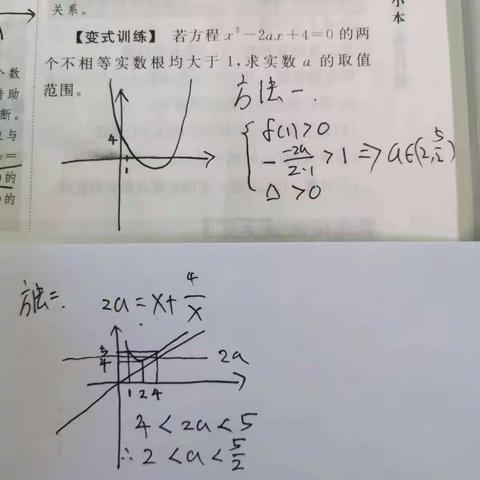 关系。
【变式训练】 若方程 x²-2ax+4=0 的两
个不相等实数根均大于 1,求实数 a 的取值
范围。
方法一.
f(1)>0
- -2a/2·1 >1 ⇒ a∈(2,5/2)
Δ>0
4
1
方法二. 2a=x+4/x
2a
5
4
1 2 4
4<2a<5
∴2<a<5/2